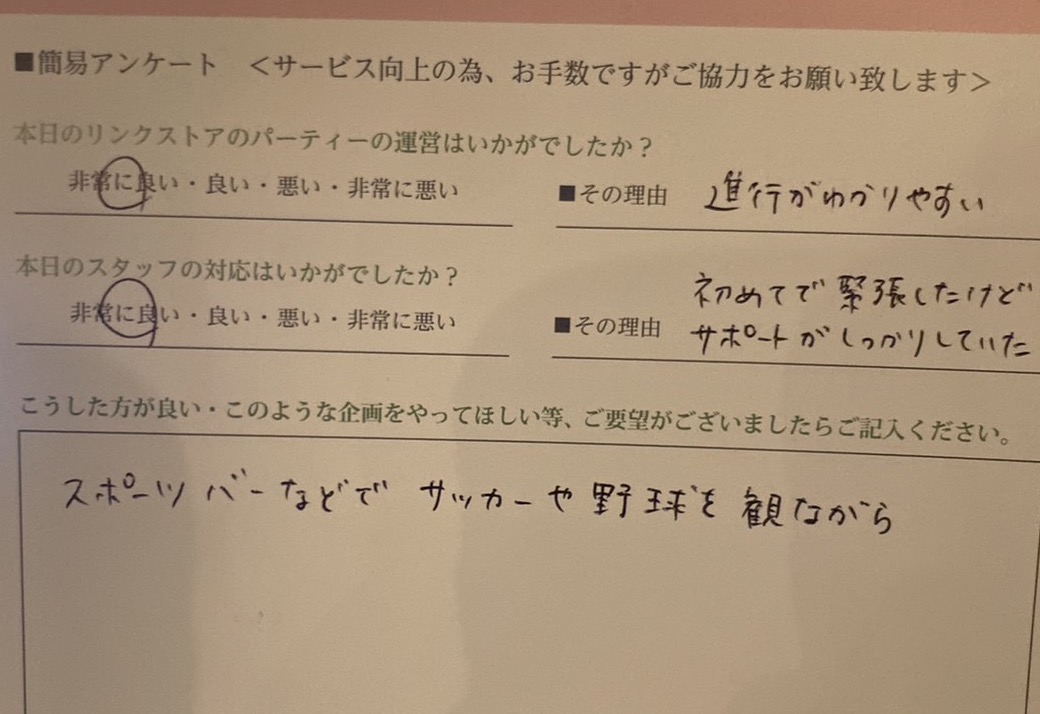 ■簡易アンケート　＜サービス向上の為、お手数ですがご協力をお願い致します＞
本日のリンクストアのパーティーの運営はいかがでしたか？
非常に良い・良い・悪い・非常に悪い　■その理由　進行がわかりやすい
本日のスタッフの対応はいかがでしたか？
非常に良い・良い・悪い・非常に悪い　■その理由　初めてで緊張したけど
サポートがしっかりしていた
こうした方が良い・このような企画をやってほしい等、ご要望がございましたらご記入ください。
スポーツバーなどで サッカーや野球を観ながら